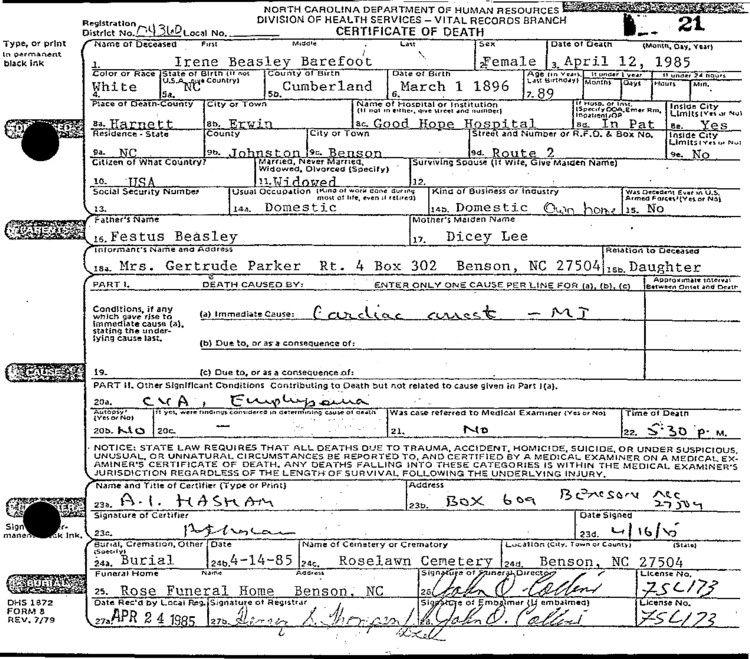 NORTH CAROLINA DEPARTMENT OF HUMAN RESOURCES
DIVISION OF HEALTH SERVICES – VITAL RECORDS BRANCH
Registration District No. Local No. CERTIFICATE OF DEATH 21
Type, or print in permanent black ink
Name of Deceased First Middle Last Sex Date of Death (Month, Day, Year)
1. Irene Beasley Barefoot 2. Female 3. April 12, 1985
Color or Race State of Birth (If not U.S.A. give Country) County of Birth Date of Birth Age (In Years Last Birthday) If under 1 year Months Days If under 24 hours Hours Min.
4. White 5a. NC 5b. Cumberland 6. March 1 1896 7. 89
Place of Death-County City or Town Name of Hospital or Institution (If not in either, give street and number) If Hosp. or Inst. (Specify DOA, Emer Rm, Inpatient/OP Inside City Limits (Yes or No)
8a. Harnett 8b. Erwin 8c. Good Hope Hospital 8d. In Pat 8e. Yes
Residence - State County City or Town Street and Number or R.F.D. & Box No. Inside City Limits (Yes or No)
9a. NC 9b. Johnston 9c. Benson 9d. Route 2 9e. No
Citizen of What Country? Married, Never Married, Widowed, Divorced (Specify) Surviving Spouse (If Wife, Give Maiden Name)
10. USA 11. Widowed 12.
Social Security Number Usual Occupation (Kind of work done during most of life, even if retired) Kind of Business or Industry Was Decedent Ever in U.S. Armed Forces? (Yes or No)
13. 14a. Domestic 14b. Domestic Own home 15. No
Father's Name Mother's Maiden Name
PARENTS
16. Festus Beasley 17. Dicey Lee
Informant's Name and Address Relation to Deceased
18a. Mrs. Gertrude Parker Rt. 4 Box 302 Benson, NC 27504 18b. Daughter
PART I. DEATH CAUSED BY: ENTER ONLY ONE CAUSE PER LINE FOR (a), (b), (c) Approximate Interval Between Onset and Death
Conditions, if any which gave rise to immediate cause (a), stating the underlying cause last.
(a) Immediate Cause: Cardiac arrest – MI
(b) Due to, or as a consequence of:
CAUSE
19. (c) Due to, or as a consequence of:
PART II. Other Significant Conditions Contributing to Death but not related to cause given in Part I(a).
20a. CVA, Emphysema
Autopsy? (Yes or No) If yes, were findings considered in determining cause of death Was case referred to Medical Examiner (Yes or No) Time of Death
20b. NO 20c. – 21. NO 22. 5:30 P. M.
NOTICE: STATE LAW REQUIRES THAT ALL DEATHS DUE TO TRAUMA, ACCIDENT, HOMICIDE, SUICIDE, OR UNDER SUSPICIOUS,
UNUSUAL, OR UNNATURAL CIRCUMSTANCES BE REPORTED TO, AND CERTIFIED BY A MEDICAL EXAMINER ON A MEDICAL EX-
AMINER'S CERTIFICATE OF DEATH. ANY DEATHS FALLING INTO THESE CATEGORIES IS WITHIN THE MEDICAL EXAMINER'S
JURISDICTION REGARDLESS OF THE LENGTH OF SURVIVAL FOLLOWING THE UNDERLYING INJURY.
Name and Title of Certifier (Type or Print) Address
23a. A.I. HASHAM 23b. BOX 609 27504
Signature of Certifier Date Signed
23c. 23d. 4/16/85
Burial, Cremation, Other (Specify) Date Name of Cemetery or Crematory Location (City, Town or County) (State)
24a. Burial 24b. 4-14-85 24c. Roselawn Cemetery 24d. Benson, NC 27504
BURIAL
Funeral Home Name Address Signature of Funeral Director License No.
25. Rose Funeral Home Benson, NC John O. Collins FSL173
DHS 1872
FORM 8
REV. 7/79
Date Rec'd by Local Reg. Signature of Registrar Signature of Embalmer (If embalmed) License No.
27a. APR 24 1985 27b. John O. Collins FSL173